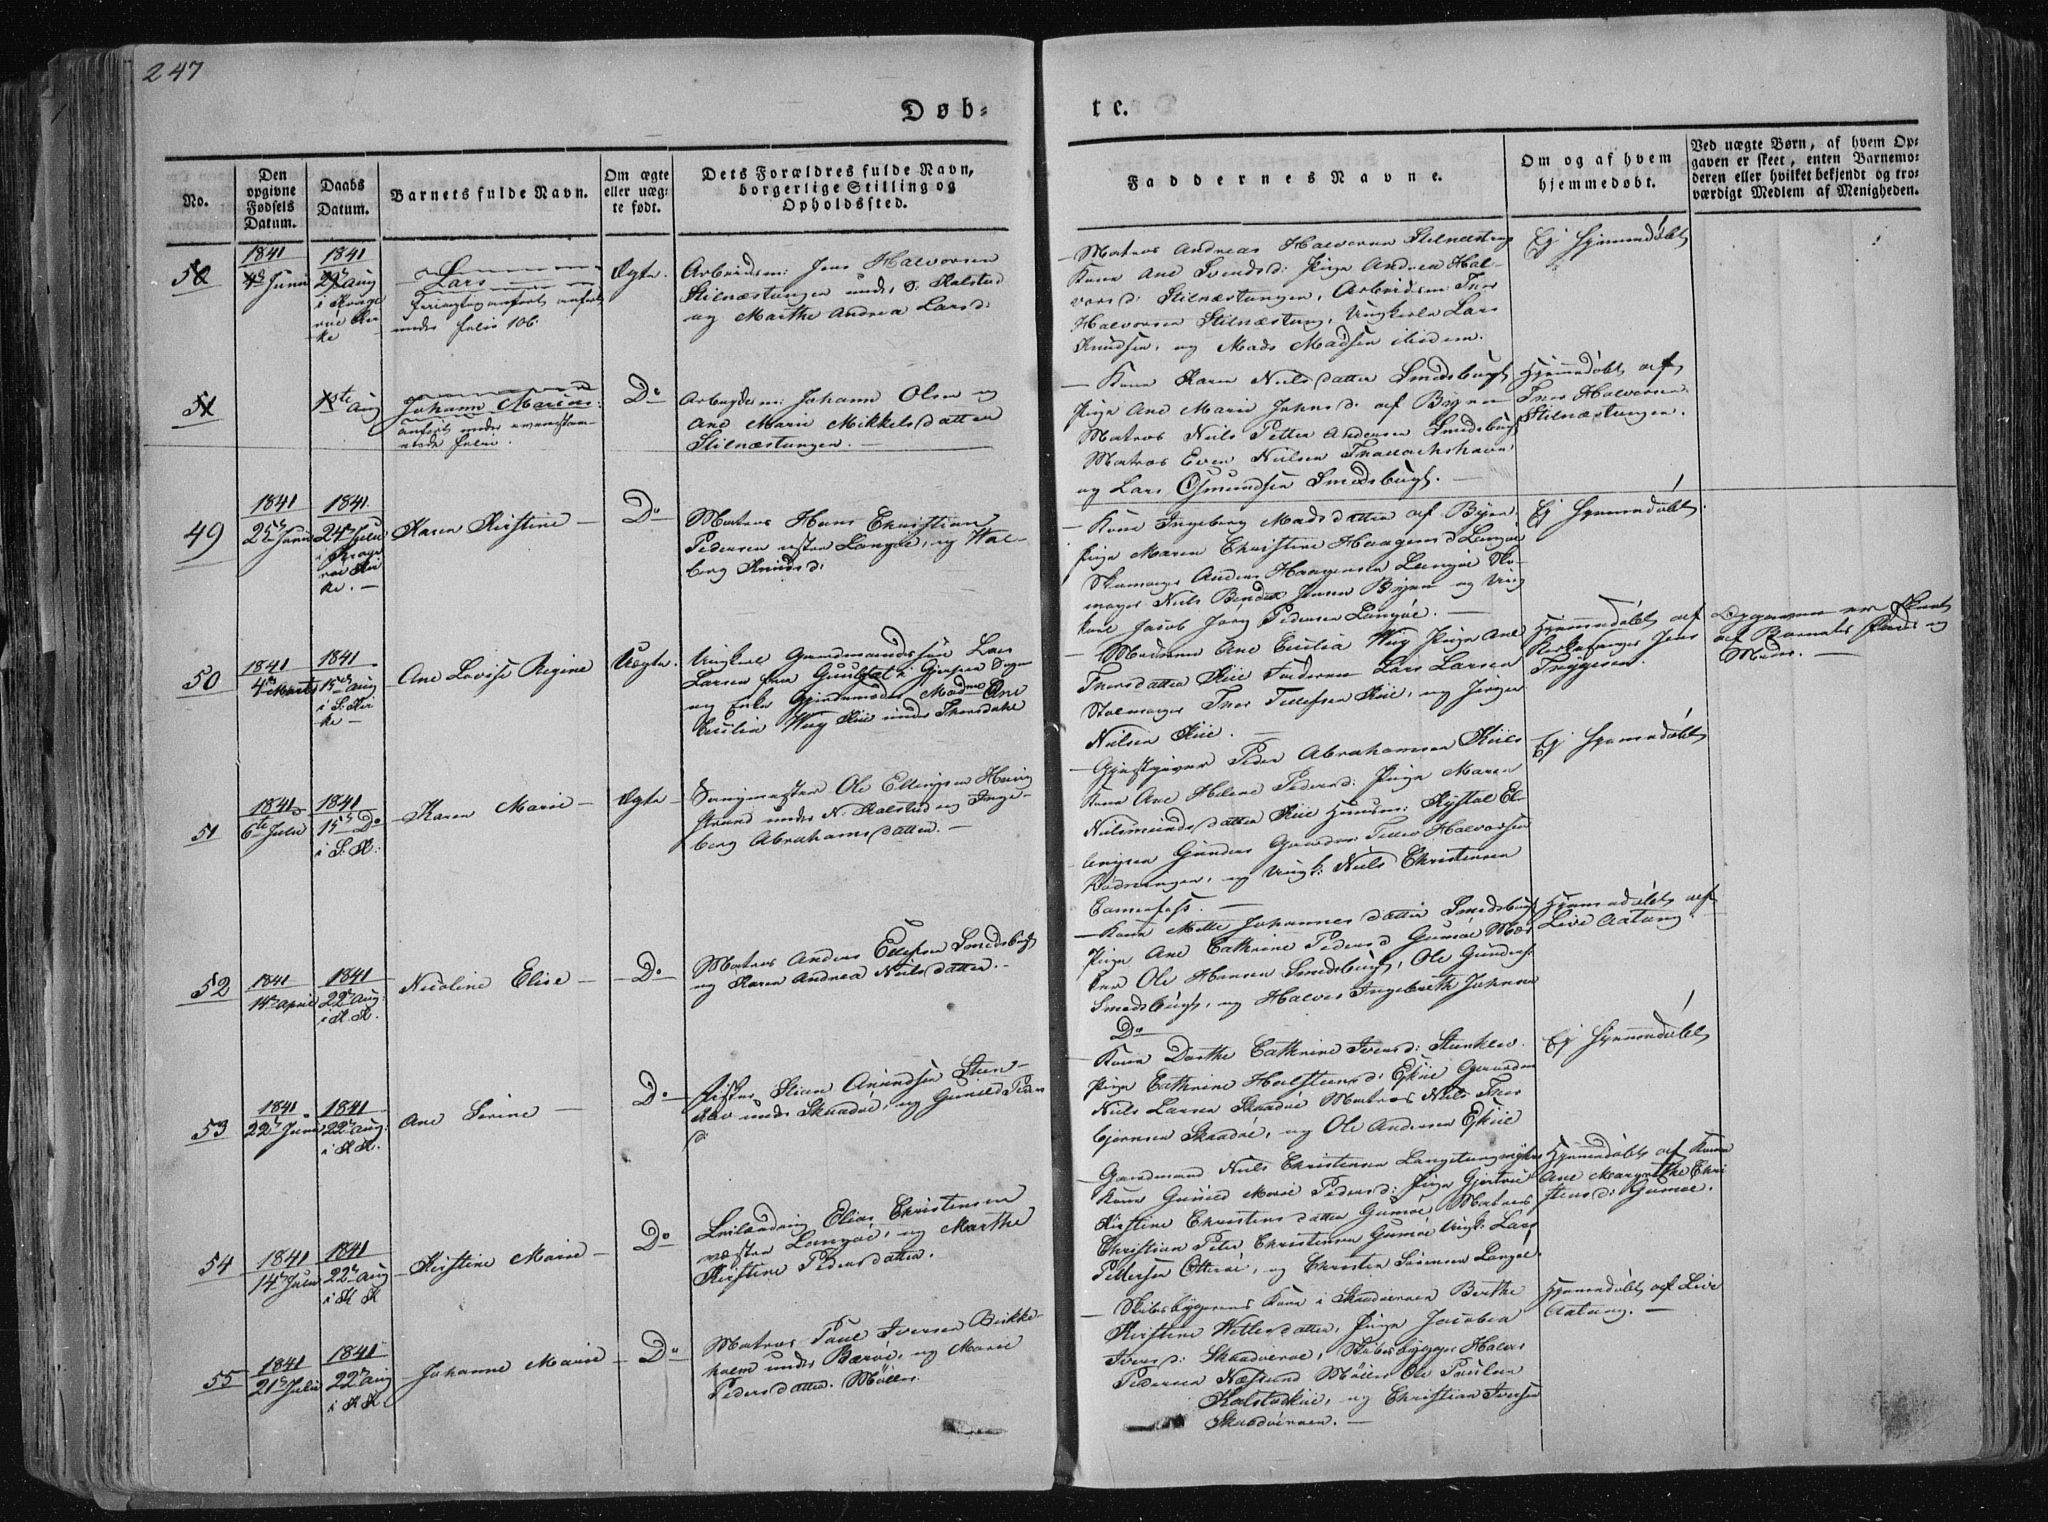 247
Døb-
te.
No.
Den
opgivne
Fødsels
Datum.
Daabs
Datum.
Barnets fulde Navn.
Om ægte
eller uæg-
te født.
Dets Forældres fulde Navn,
borgerlige Stilling og
Opholdssted.
Faddernes Navne.
Om og af hvem
hjemmedøbt.
Ved uægte Børn, af hvem Op-
gaven er skeet, enten Barnemo-
deren eller hvilket bekjendt og tro-
værdigt Medlem af Menigheden.
50
1841
Juni
1841
Aug
i Krage
röe Kir-
ke
Lars
under folio 106
Ægte
Arbeidsm: Jens Halvorsen
Stilnæstangen under S. Kalstad
og Marthe Andrea Larsd:
Matros Andreas Halvorsen Stilnæstang
Kone Ane Svendsd: Pige Andrea Hal-
vorsd: Stilnæstangen, Arbeidsm: Thor
Halvorsen Stilnæstang, Ungkarle Lars
Knudsen, og Mads Madsen ibidem.
Ej hjemmedöbt
51
1ste Aug
Johann Marius
anfört under ovenstaa-
ende folio
Do
Arbeydsm: Johann Olsen og
Ane Marie Mikkelsdatter
Stilnæstangen. —
Kone Karen Nielsdatter Smedsbugt
Pige Ane Marie Johnsd: af Byen
Matros Niels Petter Andersen Smedsbugt
Matros Even Nielsen
og Lars Osmundsen Smedsbugt. —
Hjemmedöbt af
Thor Halvorsen
Stilnæstangen.
49
1841
25de Juni
1841
24de Juli
i Krage
röe Kir
ke. —
Karen Kirstine —
Do
Matros Hans Christian
Pedersen östre Langöe, og Val-
borg Knudsd:
Kone Ingeborg Madsdatter af Byen
Pige Maren Christine Haagensd: Langöe
Skomager Anders Haagensen Langöe Sko-
mager Niels Jensen Byen og Ung
karl Jacob Jörg Pedersen Langöe. —
Ej hjemmedöbt
50
1841
4de Marts
1841
15de Aug
i S. Kir
ke —
Ane Lovise Regine
Uægte.
Ungkarl Gaardmandssön Lars
Larsen fra i Gjerpen Sogn
og Enke Madme Ane
Cecilia Wüg Kiil under Thorsdahl
Madame Ane Cecilia Wüg Pige Ane
Thorsdatter Kiil Faderen Lars Larsen
Stolmager Thor Tellefsen Kiil, og Jörgen
Nielsen Kiil. —
Hjemmedöbt af
Jens
Trÿgesen.
Opgaven er skeet
af Barnets Fader og
Moder. —
51
1841
6te Juli
1841
15de Do
i S. K:
Karen Marie —
Ægte —
Saugmester Ole Ellingsen
strand under N. Kalstad og Inge-
borg Abrahamsdatter. —
Gjestgiver Peder Abrahamsen Kiil
Kone Ane Helene Pedersd: Pige Maren
Nielsmundsdatter Kiil Huusm: Kÿstol El-
lingsen Gunders Gaarden Tellev Halvorsen
og Ungk: Niels Christensen
Ej hjemmedöbt
52
1841
14de April
1841
22de Aug:
i K K.
Nicoline Elise —
Do
Matros Anders Ellefsen Smedsbugt
og Karen Andrea Nielsdatter. —
Kone Mette Johannesdatter Smedsbugt
Pige Ane Cathrine Pedersd Gumöe Ma-
tros Ole Hansen Smedsbugt, Ole Gunders:
Smedsbugt, og Halvor Ingebreth Johnsen
Do
Hjemmedöbt af
Live Aatang
53
1841
22de Juni
1841
22de Aug:
i K K.
Ane Serine —
Do
Fisker Stian Amundsen Steen-
klev under Skaadöe, og Gunild Peders
d:
Kone Dorthe Cathrine Iversd: Steenklev.
Pige Cathrine Halsteensd: Gaarden
Niels Larsen Skaadöe Matros Niels Thor
björnsen Skaadöe, og Ole Andersen
Ej hjemmedöbt
54
1841
14de Juli
1841
22de Aug
i K K
Kirstine Marie —
Do
Leilænding Elias Christensen
vestre Langöe, og Marthe
Kirstine Pedersdatter.
Gaardmand Niels Christensen
Kone Gunild Marie Pedersd: Pige Gjertru
Kirstine Christensdatter Gumöe Matros
Christian Peter Christensen Gumöe Ungk: Lars
Pettersen Otteröe, og Christen Sörensen Langöe.
Hjemmedöbt af Kone
Ane Margrethe Chri
stensd: Gumöe.
55
1841
21de Juli
1841
22de Aug
i K K.
Johanne Marie —
Do
Matros Paul Iversen Birke-
holm under Bæröe, og Marie
Pedersdatter Möllen
Skibsbyggerens Kone i Skaadöeroen Berthe
Kirstine Nielsdatter, Pige Jacobea
Iversd: Skaadöeroe, Skibsbygger Halvor
Pedersen Næsund Möllen Ole Paulsen
Kalstadkiil, og Christian Iversen
Skaadöeroen. —
Hjemmedöbt af Live
Aatang. —